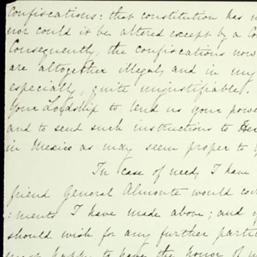 confiscations: that constitution has n
nor could it be altered except by a Co
Consequently, the confiscations now
are altogether illegal, and in my
especially, quite unjustifiable.
Your Lordship to lend us your powe
and to send such instructions to Her
in Mexico as may seem proper to y
In case of need, I have
friend General Almonte would con
:ments I have made above; and if
should wish for any further parti
most happy to have the honor of w